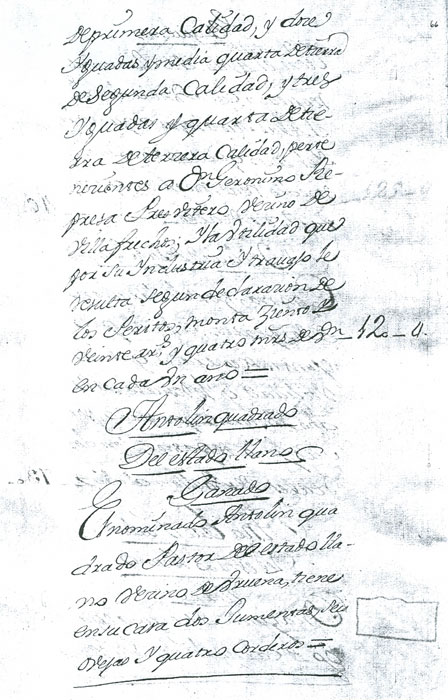 de primera Calidad, y doze
Yguadas y media quarta de tierra
de Segunda Calidad, y tres
Yguadas y quarta de tie-
rra de terzera Calidad, perte
nezientes a Dn Geronimo Re-
presa Presvitero Vezino de
Villafruchos; Y la Utilidad que
por su Yndustria Y travajo le
resulta segun declarazion de
los Peritos, monta Ziento y
veinte rrs. y quatro mrs de Vn 120-4.
en cada Un año =
Antolin quadrado
Del estado llano
Ganado
El nominado Antolin qua
drado Pastor de el estado lla-
no Vezino de tiene
en su Casa dos Jumentas, seis
ovejas Y quatro Corderos =